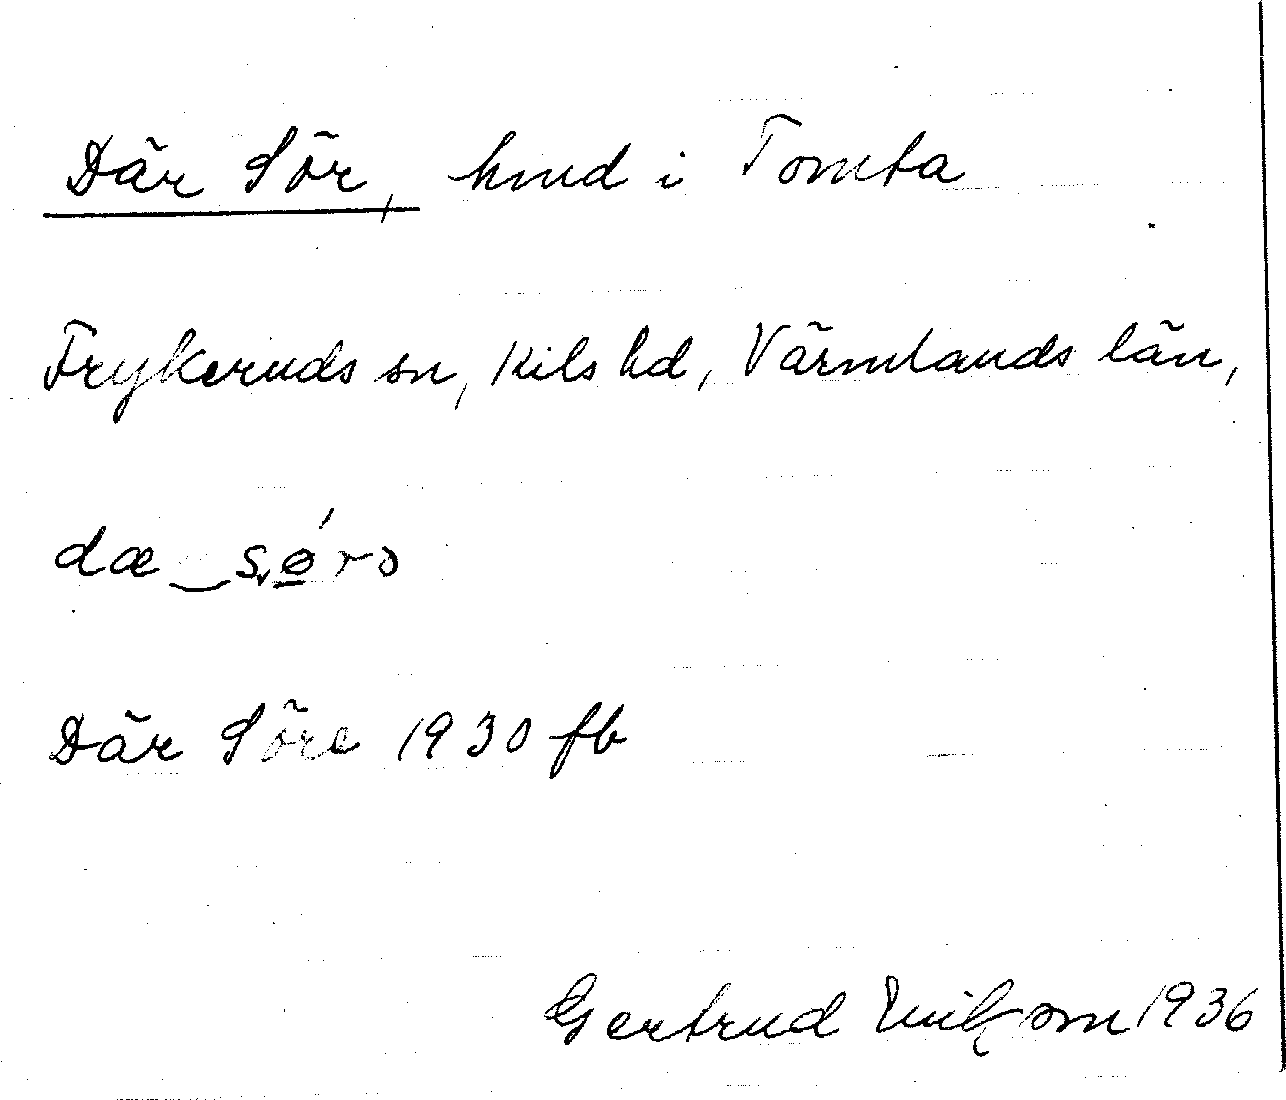 Där Sör, hmd i Tomta
Frykeruds sn, Kils hd, Värmlands län,
dæ‿sǿ̠rə
Där Söre 1930 fb
Gertrud 1936